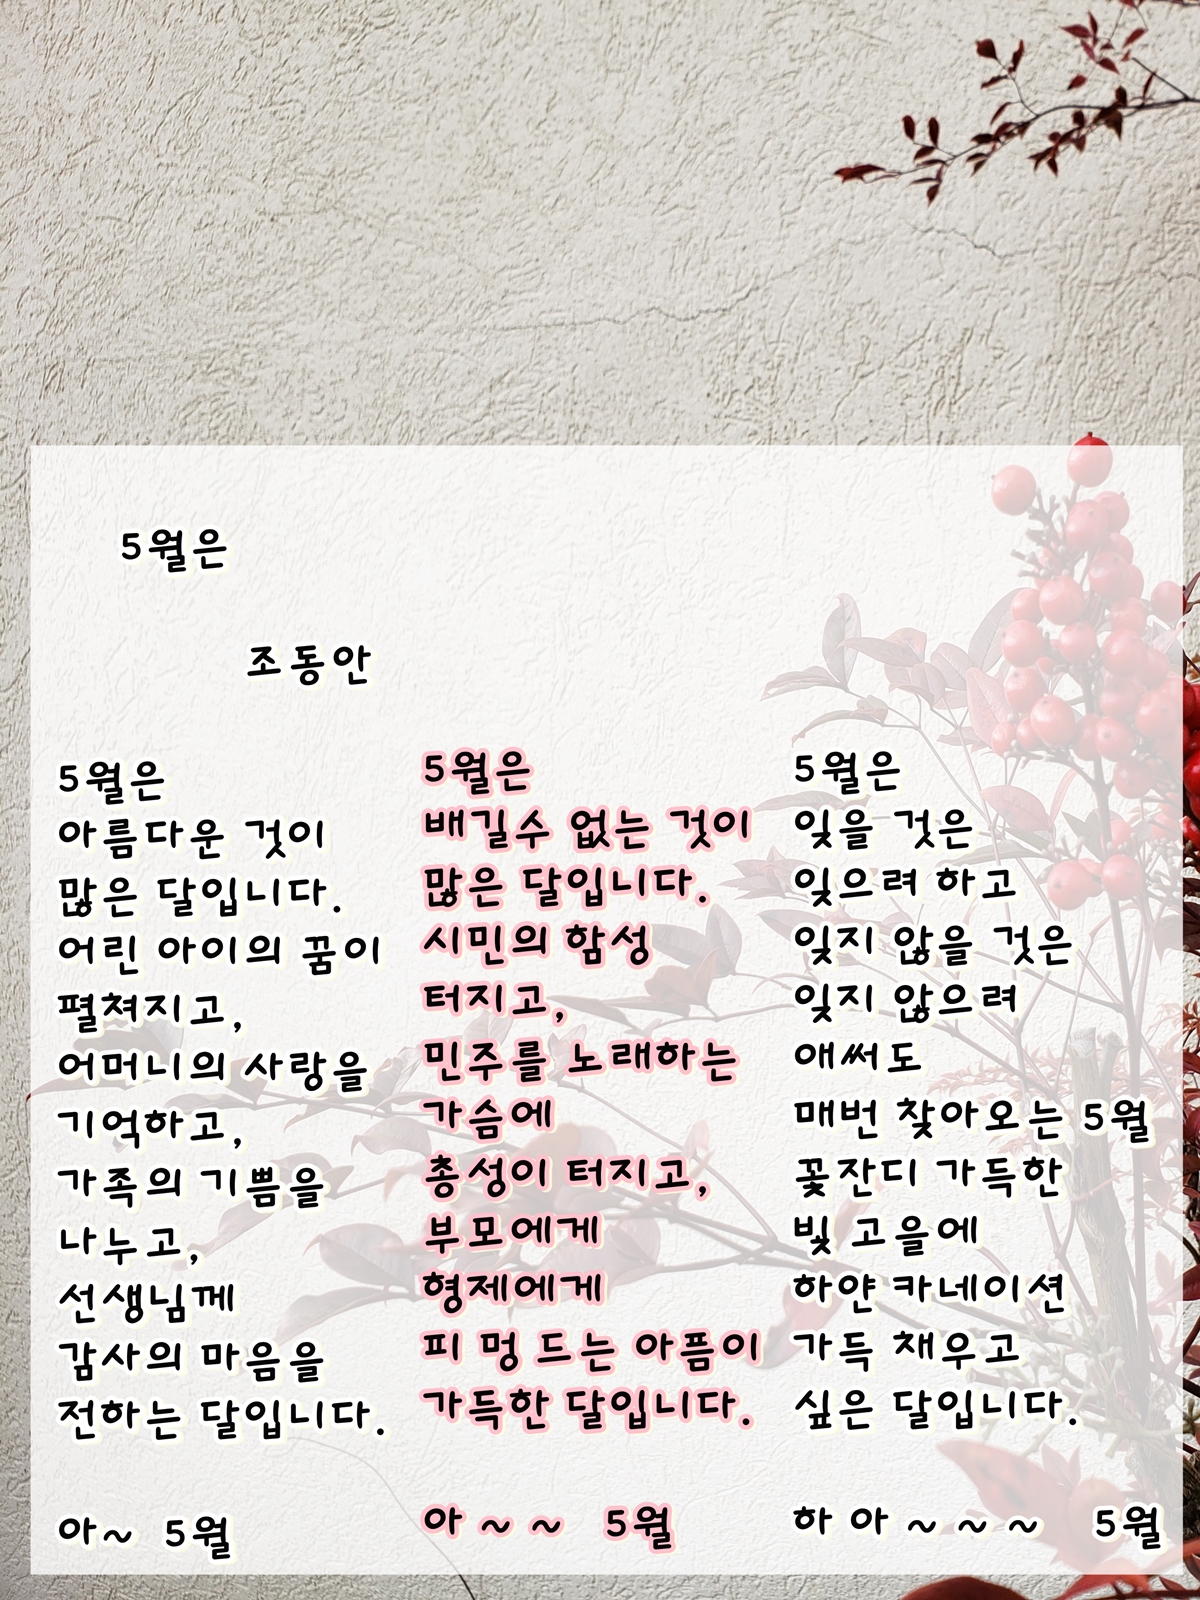 5월은
조동안
5월은
아름다운 것이
많은 달입니다.
어린 아이의 꿈이
펼쳐지고,
어머니의 사랑을
기억하고,
가족의 기쁨을
나누고,
선생님께
감사의 마음을
전하는 달입니다.
아~ 5월
5월은
배길수 없는 것이
많은 달입니다.
시민의 함성
터지고,
민주를 노래하는
가슴에
총성이 터지고,
부모에게
형제에게
피 멍 드는 아픔이
가득한 달입니다.
아 ~ ~ 5월
5월은
잊을 것은
잊으려 하고
잊지 않을 것은
잊지 않으려
애써도
매번 찾아오는 5월
꽃잔디 가득한
빛 고을에
하얀 카네이션
가득 채우고
싶은 달입니다.
하 아 ~ ~ ~ 5월